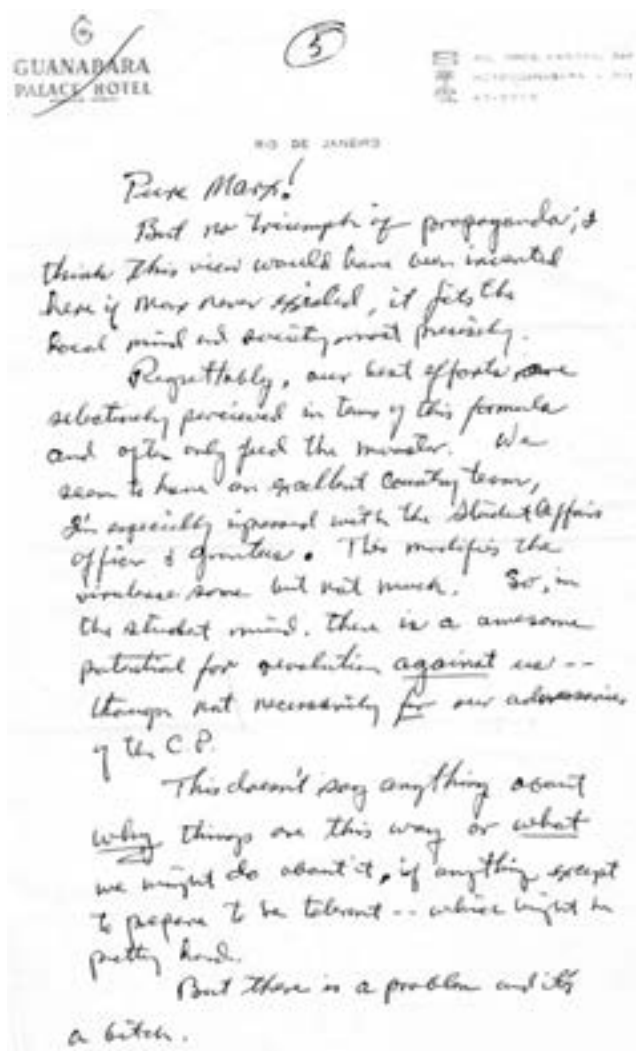 GUANABARA
PALACE HOTEL
5
RIO DE JANEIRO
Pure Marx!
But no triumph of propaganda; I
think this view would have been invented
here if Marx never existed, it fits the
local mind and society most precisely.
Regrettably, our best efforts are
selectively perceived in terms of this formula
and often only feed the monster. We
seem to have an excellent country team,
I'm especially impressed with the Student Affairs
officer & grantees. This modifies the
virulence some but not much. So, in
the student mind, there is a awesome
potential for revolution against us --
though not necessarily for our adversaries
of the C.P.
This doesn't say anything about
why things are this way or what
we might do about it, if anything except
to prepare to be tolerant -- which might be
pretty hard.
But there is a problem and it's
a bitch.